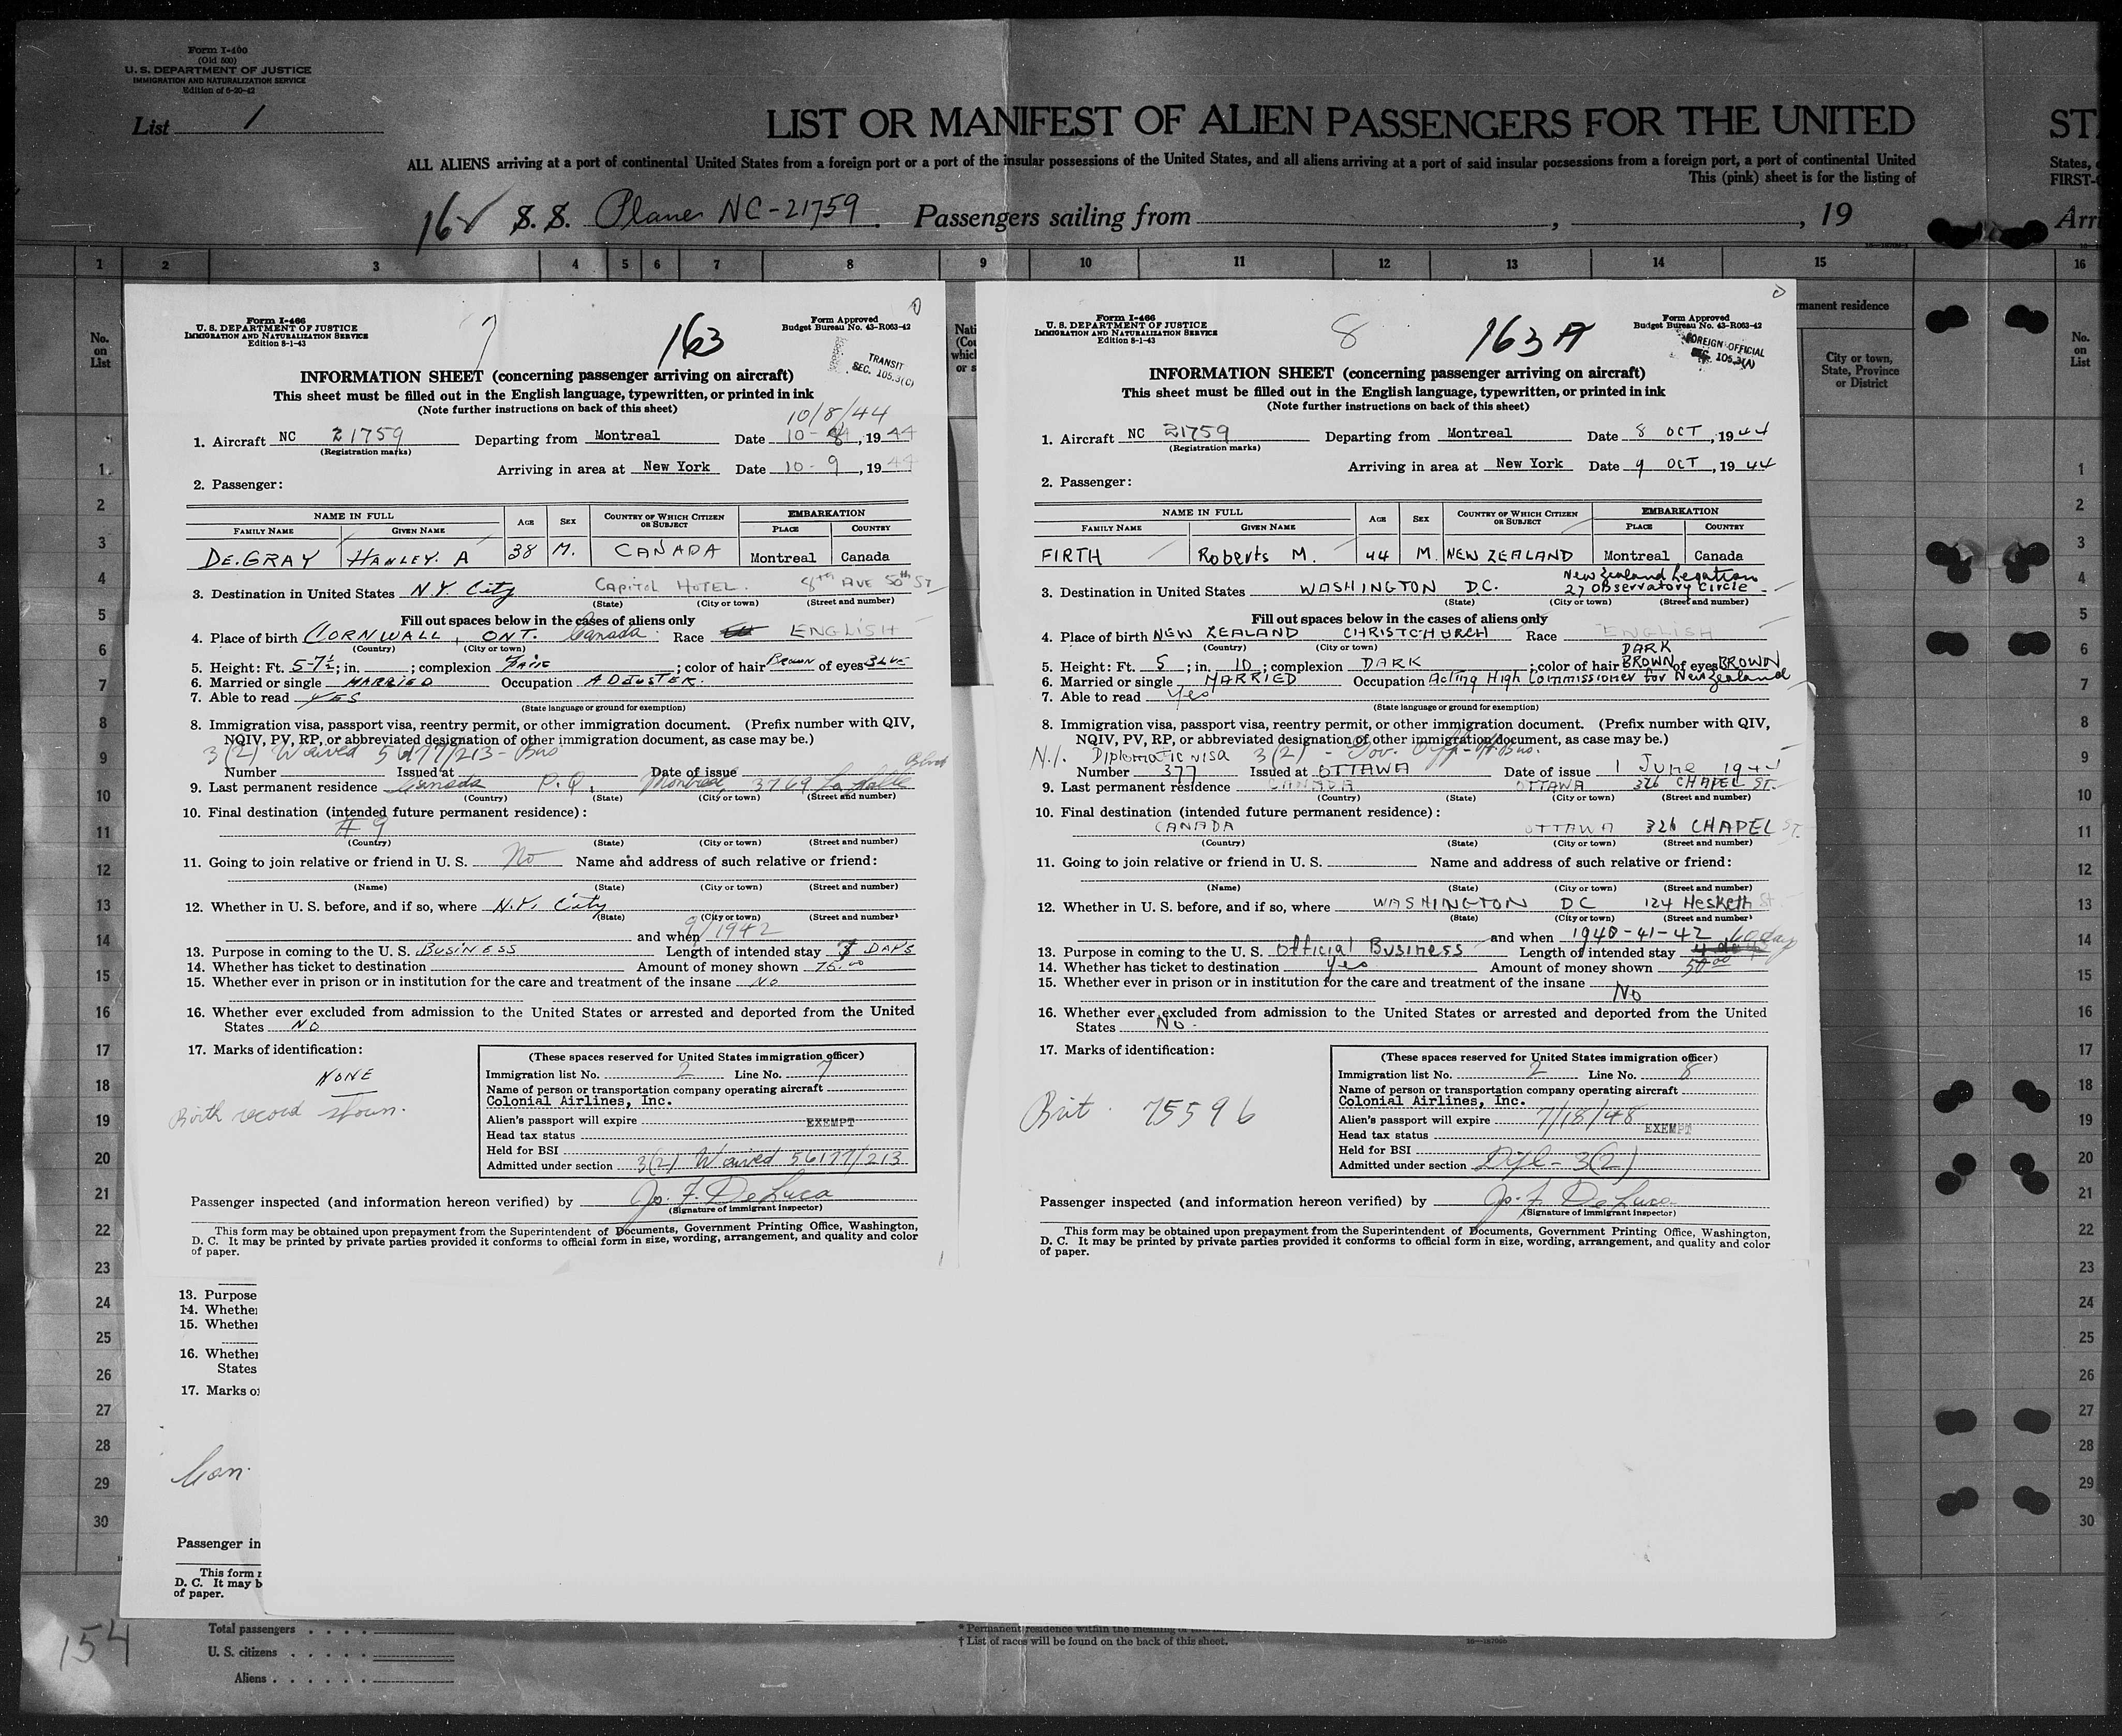 Form I-400
(Old 500)
U. S. DEPARTMENT OF JUSTICE
IMMIGRATION AND NATURALIZATION SERVICE
Edition of 6-20-42
List 1
LIST OR MANIFEST OF ALIEN PASSENGERS FOR THE UNITED
ST
ALL ALIENS arriving at a port of continental United States from a foreign port or a port of the insular possessions of the United States, and all aliens arriving at a port of said insular possessions from a foreign port, a port of continental United
States,
This (pink) sheet is for the listing of
FIRST-
S. S. Plane NC-21759 Passengers sailing from , , 19
Arri
1 2 3 4 5 6 7 8 9 10 11 12 13 14 15 16
No. on List
manent residence
City or town, State, Province or District
No. on List
Form I-466
U. S. DEPARTMENT OF JUSTICE
IMMIGRATION AND NATURALIZATION SERVICE
Edition 8-1-43
7
163
Form Approved
Budget Bureau No. 43-R063-42
TRANSIT
SEC. 105.3(C)
INFORMATION SHEET (concerning passenger arriving on aircraft)
This sheet must be filled out in the English language, typewritten, or printed in ink
(Note further instructions on back of this sheet)
10/8/44
1. Aircraft NC 21759 Departing from Montreal Date 10- , 19 44
(Registration marks)
Arriving in area at New York Date 10-9, 19 44
2. Passenger:
NAME IN FULL AGE SEX COUNTRY OF WHICH CITIZEN OR SUBJECT EMBARKATION
FAMILY NAME GIVEN NAME PLACE COUNTRY
DE.GRAY HANLEY. A 38 M. CANADA Montreal Canada
3. Destination in United States N.Y. City CAPITOL HOTEL. 8th AVE 50th ST
(State) (City or town) (Street and number)
Fill out spaces below in the cases of aliens only
4. Place of birth CORNWALL, ONT. Canada Race ENGLISH
(Country) (City or town)
5. Height: Ft. 5-7½; in. ; complexion FAIR ; color of hair BROWN of eyes BLUE
6. Married or single MARRIED Occupation ADJUSTER.
7. Able to read YES
(State language or ground for exemption)
8. Immigration visa, passport visa, reentry permit, or other immigration document. (Prefix number with QIV,
NQIV, PV, RP, or abbreviated designation of other immigration document, as case may be.)
3(2) Waived 56177/213 - Bus
Number Issued at Date of issue
9. Last permanent residence Canada P.Q. Montreal 3769 La Salle Blvd
(Country) (State) (City or town) (Street and number)
10. Final destination (intended future permanent residence):
# 9
(Country) (State) (City or town) (Street and number)
11. Going to join relative or friend in U. S. No Name and address of such relative or friend:
(Name) (State) (City or town) (Street and number)
12. Whether in U. S. before, and if so, where N.Y. City
(State) (City or town) (Street and number)
and when 9/1942
13. Purpose in coming to the U. S. BUSINESS Length of intended stay DAYS
14. Whether has ticket to destination Amount of money shown 75.00
15. Whether ever in prison or in institution for the care and treatment of the insane NO
16. Whether ever excluded from admission to the United States or arrested and deported from the United
States NO
17. Marks of identification:
NONE
Birth record shown.
(These spaces reserved for United States immigration officer)
Immigration list No. 2 Line No. 7
Name of person or transportation company operating aircraft
Colonial Airlines, Inc.
Alien's passport will expire
EXEMPT
Head tax status
Held for BSI
Admitted under section 3(2) Waived 56177/213
Passenger inspected (and information hereon verified) by Jo. F. DeLuca
(Signature of immigrant inspector)
This form may be obtained upon prepayment from the Superintendent of Documents, Government Printing Office, Washington,
D. C. It may be printed by private parties provided it conforms to official form in size, wording, arrangement, and quality and color
of paper.
Form I-466
U. S. DEPARTMENT OF JUSTICE
IMMIGRATION AND NATURALIZATION SERVICE
Edition 8-1-43
8
163 A
Form Approved
Budget Bureau No. 43-R063-42
FOREIGN OFFICIAL
SEC. 105.3(A)
INFORMATION SHEET (concerning passenger arriving on aircraft)
This sheet must be filled out in the English language, typewritten, or printed in ink
(Note further instructions on back of this sheet)
1. Aircraft NC 21759 Departing from Montreal Date 8 OCT, 19 44
(Registration marks)
Arriving in area at New York Date 9 OCT, 19 44
2. Passenger:
NAME IN FULL AGE SEX COUNTRY OF WHICH CITIZEN OR SUBJECT EMBARKATION
FAMILY NAME GIVEN NAME PLACE COUNTRY
FIRTH Roberts M. 44 M. NEW ZEALAND Montreal Canada
New Zealand Legation
3. Destination in United States WASHINGTON D.C. 27 Observatory Circle
(State) (City or town) (Street and number)
Fill out spaces below in the cases of aliens only
4. Place of birth NEW ZEALAND CHRISTCHURCH Race ENGLISH
(Country) (City or town)
DARK
5. Height: Ft. 5; in. 10; complexion DARK ; color of hair BROWN of eyes BROWN
6. Married or single MARRIED Occupation Acting High Commissioner for New Zealand
7. Able to read Yes
(State language or ground for exemption)
8. Immigration visa, passport visa, reentry permit, or other immigration document. (Prefix number with QIV,
NQIV, PV, RP, or abbreviated designation of other immigration document, as case may be.)
N.I. Diplomatic visa 3(2) - Gov. Off - Bus.
Number 377 Issued at OTTAWA Date of issue 1 June 1944
9. Last permanent residence CANADA OTTAWA 326 CHAPEL ST.
(Country) (State) (City or town) (Street and number)
10. Final destination (intended future permanent residence):
CANADA OTTAWA 326 CHAPEL ST.
(Country) (State) (City or town) (Street and number)
11. Going to join relative or friend in U. S. Name and address of such relative or friend:
(Name) (State) (City or town) (Street and number)
12. Whether in U. S. before, and if so, where WASHINGTON DC 124 Hesketh St
(State) (City or town) (Street and number)
and when 1940-41-42
13. Purpose in coming to the U. S. Official Business Length of intended stay 60 days
14. Whether has ticket to destination yes Amount of money shown 50.00
15. Whether ever in prison or in institution for the care and treatment of the insane
No
16. Whether ever excluded from admission to the United States or arrested and deported from the United
States No.
17. Marks of identification:
Brit. 75596
(These spaces reserved for United States immigration officer)
Immigration list No. 2 Line No. 8
Name of person or transportation company operating aircraft
Colonial Airlines, Inc.
Alien's passport will expire 7/18/48
EXEMPT
Head tax status
Held for BSI
Admitted under section Dipl - 3(2)
Passenger inspected (and information hereon verified) by Jo. F. DeLuca
(Signature of immigrant inspector)
This form may be obtained upon prepayment from the Superintendent of Documents, Government Printing Office, Washington,
D. C. It may be printed by private parties provided it conforms to official form in size, wording, arrangement, and quality and color
of paper.
13. Purpose
14. Whether
15. Whether
16. Whether
States
17. Marks of
Can.
Passenger in
This form
D. C. It may b
of paper.
154
Total passengers
U. S. citizens
Aliens
* Permanent residence within the meaning of
† List of races will be found on the back of this sheet.